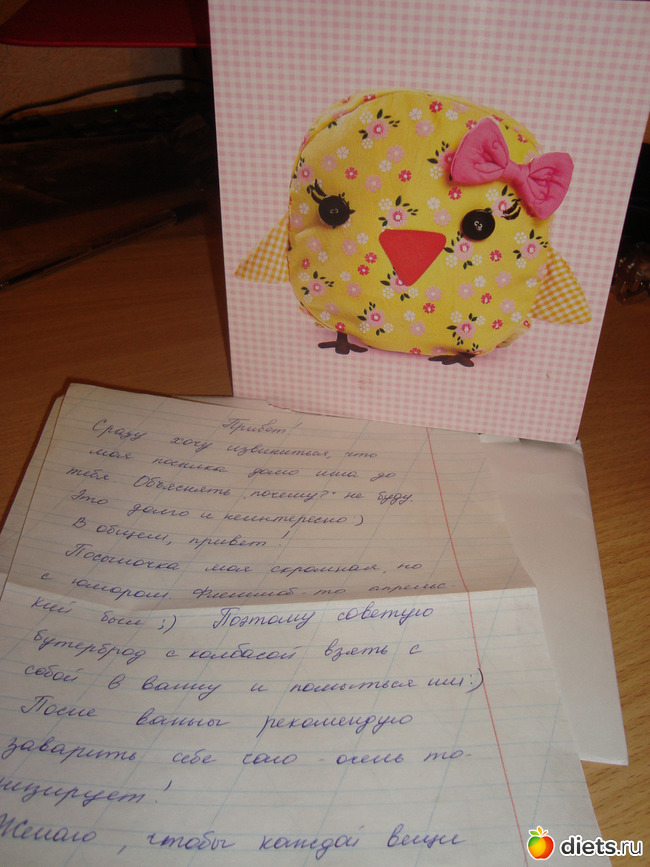 Привет!
Сразу хочу извиниться, что
моя посылка долго шла до
тебя. Объяснять "почему?" не буду.
Это долго и неинтересно)
В общем, привет!
Посылочка моя скромная, но
с юмором. Флешмоб-то апрельс-
кий был ;) Поэтому советую
бутерброд с колбасой взять с
собой в ванну и помыться им :)
После ванны рекомендую
заварить себе чаю - очень то-
низирует!
Желаю, чтобы каждой вещи
diets.ru